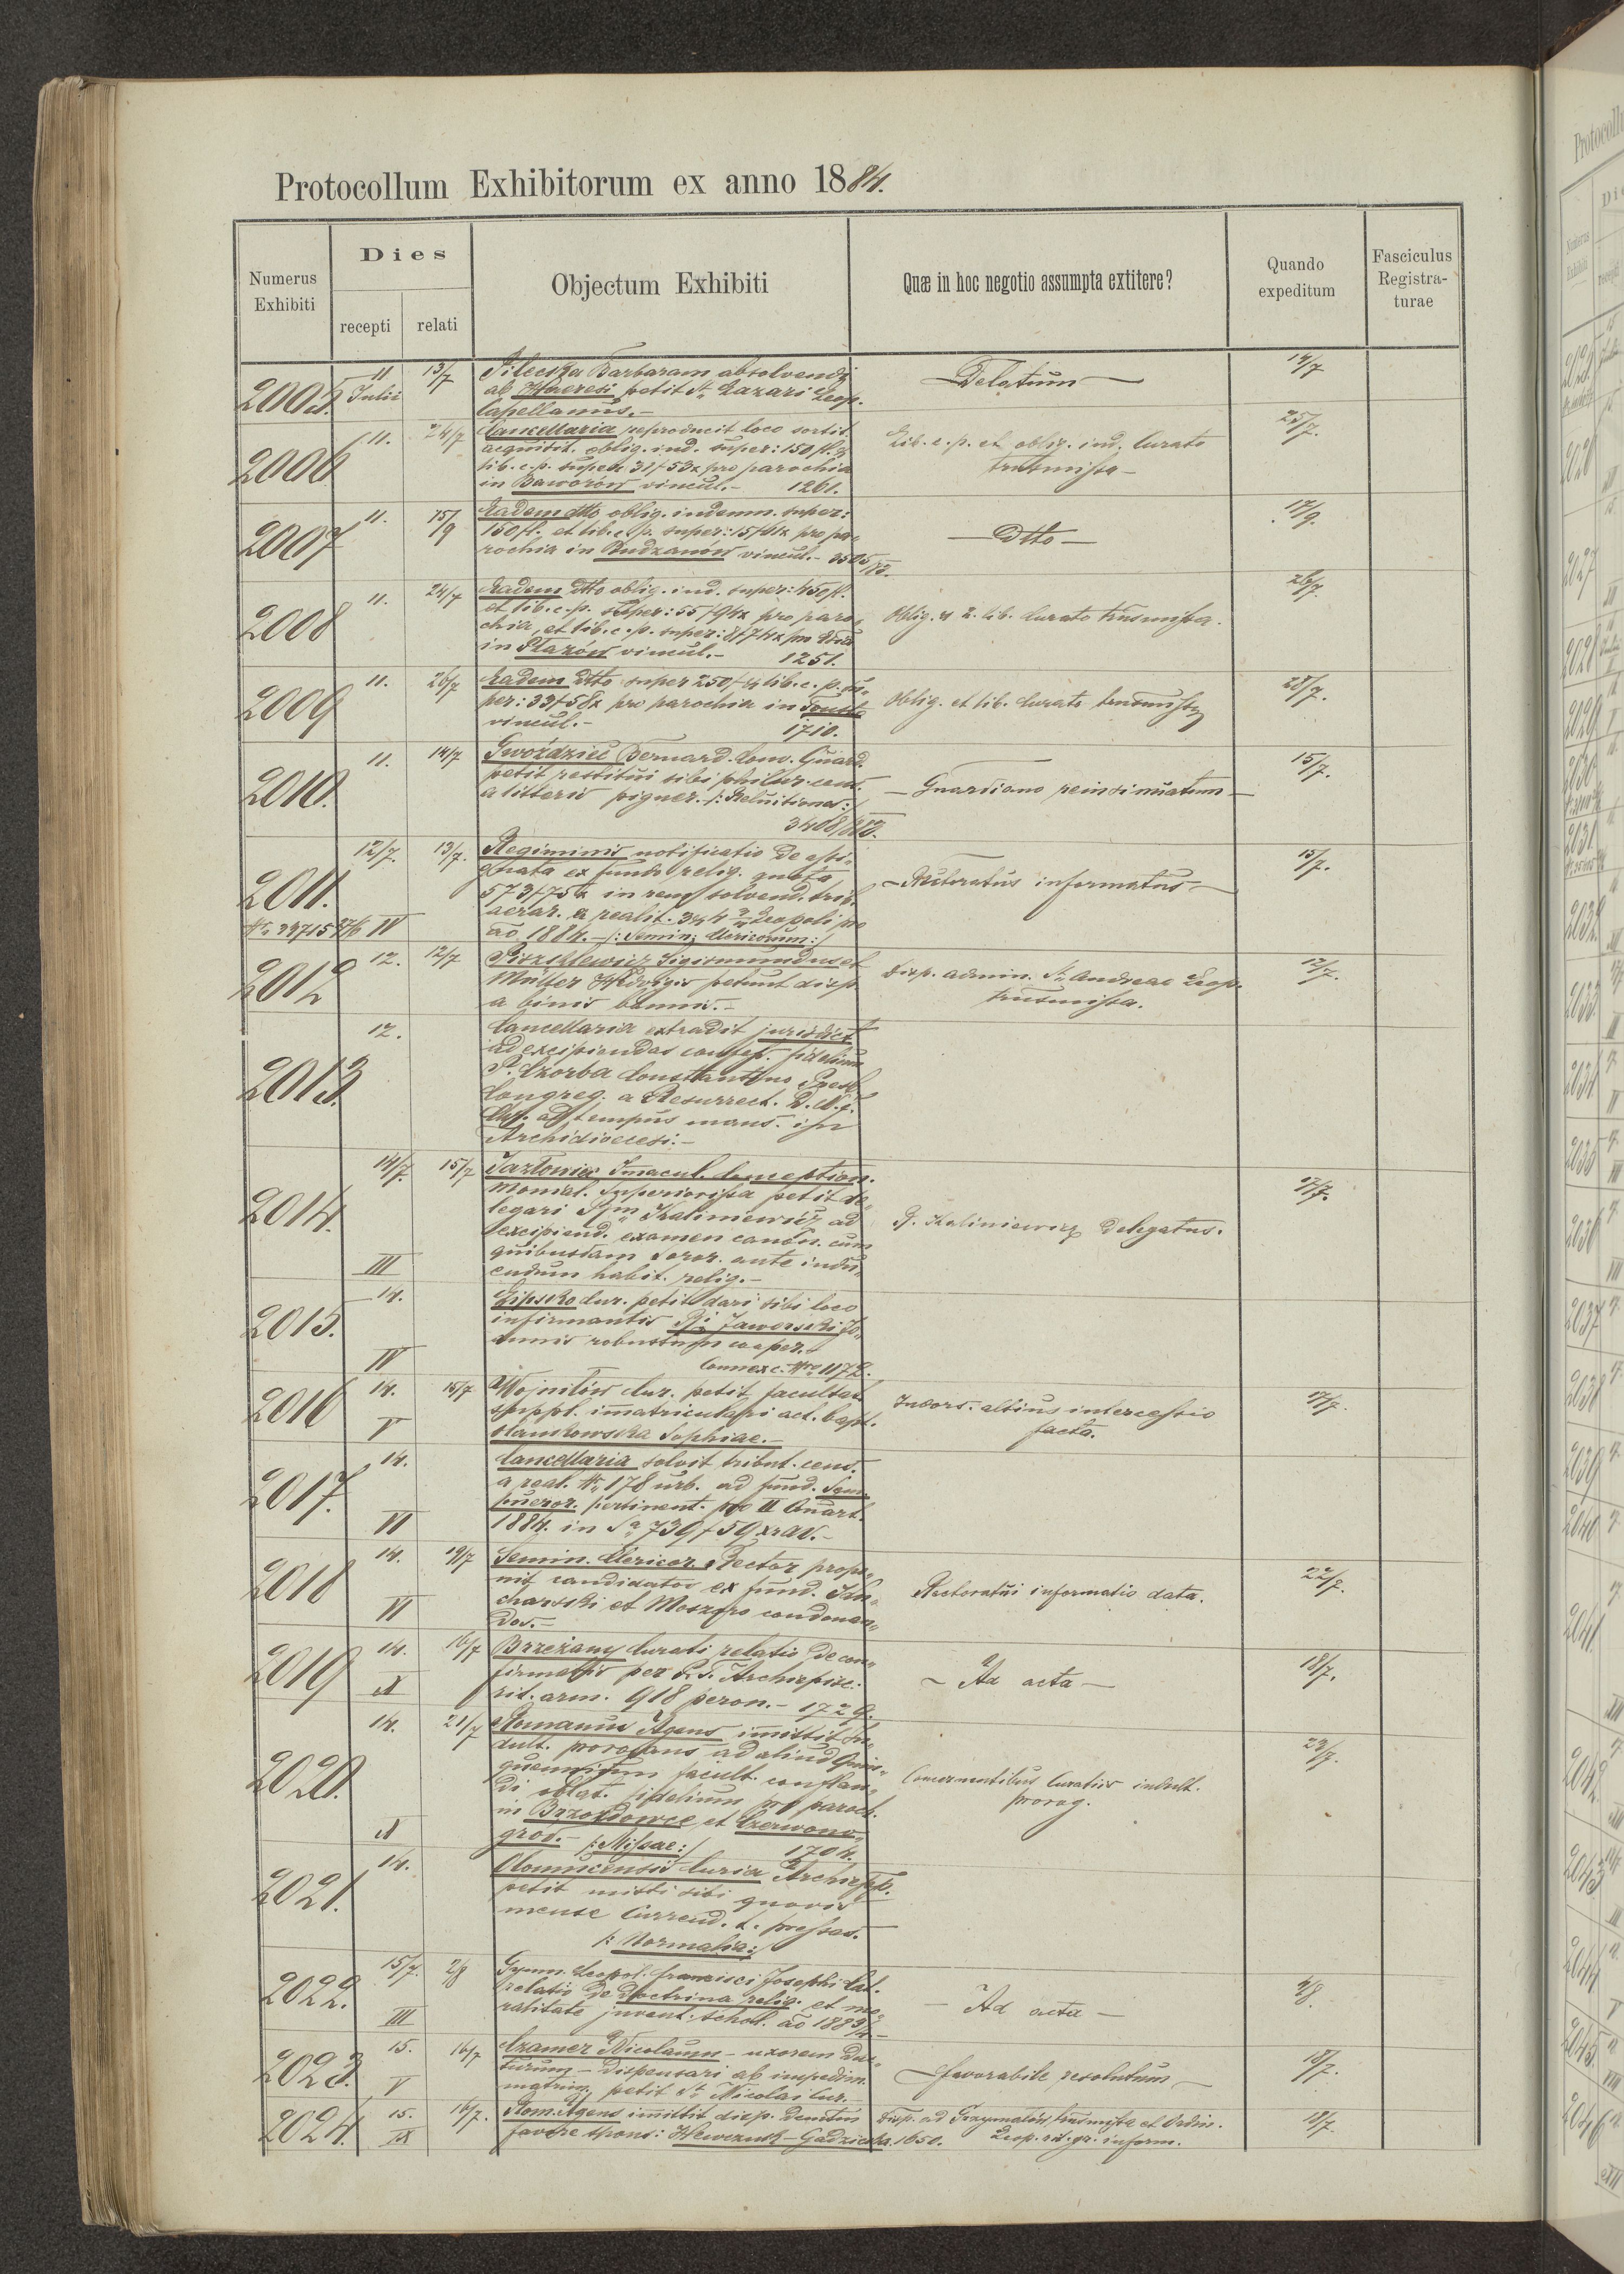 Protocollum Exhibitorum ex anno 1884.
Numerus Exhibiti
Dies
recepti relati
Objectum Exhibiti
Quæ in hoc negotio assumpta extitere?
Quando expeditum
Fasciculus Registra-
turae
2005. 11 Julii 13/7 Pilecska Barbaram absolvendi
ab Haeresi petit St. Lazari Leop.
Capellanus.-
Delatum 14/7
2006 11. 24/7 Cancellaria reproducit loco sortit.
acquisit. oblig. ind. super: 150 fl. &
lib. c. p. super 31f 53x pro parochia
in Baworów vincul.- 1261.
Lib. c. p. et oblig. ind. Curato
transmissa - 25/7.
2007 11. 15/9 Eadem dtto oblig. indemn. super:
150 fl. et lib. c. p. super: 15f 61x pro pa-
rochia in Budzanów vincul.- 3505/83.
- Dtto - 17/9.
2008 11. 24/7 Eadem dtto oblig. ind. super: 450 fl.
et lib. c. p. super: 55f 94x pro paro-
chia, et lib. c. p. super: 8f 74x pro
in Płazów vincul.- 1251.
Oblig. et 2. lib. Curato transmissa. 26/7.
2009 11. 26/7 Eadem dtto super 250f et lib. c. p. su-
per: 33f 58x pro parochia in Touste
vincul.- 1710.
Oblig. et lib. Curato transmissa 28/7.
2010. 11. 14/7 Gwoździec Bernard. Conv. Guard.
petit restitui sibi
a litteris pigner. /: Reluitiones :/
3408/883.
- Guardiano reinsinuatum - 15/7.
2011. 12/7. 13/7. Regiminis notificatio de assi-
gnata ex fundo relig. quota
573f 75x in rem solvend. trib.
aerar. a realit. 344 2/4 Leopoli pro
ao 1884.- /: Semin: Clericorum :/
Nr. 39715 IV
- Rectoratus informatus - 15/7.
2012 12. 12/7 Sigismundus et
Müller Hedvigis petunt disp.
a binis bannis.-
Disp. admin. St. Andreae Leop.
transmissa. 12/7.
2013. 12. Cancellaria extradit jurisdict.
ad excipiendas confess. fidelium
P. Czorba Constantino Presb.
Congreg. a Resurrect. D. N. J.
Chr. ad tempus mans. in
Archidioecesi.-
2014. 14/7. 15/7 Jazłowiec Imacul. Conception.
Monial. Superiorissa petit de-
legari Kaliniewicz ad
excipiend. examen canon. cum
quibusdam soror. ante indu-
endum habit. relig.-
III
P. Kaliniewicz delegatus. 17/7.
2015. 14. Lipsko Cur. petit dari sibi loco
infirmantis Jaworski Jo-
annis robustum cooper.
IV Connexc. Nro 1172.
2016 14. 15/7 Wojniłów Cur. petit facultat.
suppl. imatriculari act. bapt.
V Stankowska Sophiae.-
Indors. altius intercessio
facta. 17/7.
2017. 14. Cancellaria solvit tribut. cens.
a real. Nr 178 urb. ad fund. Sem.
pueror. pertinent. pro II Quart.
VI 1884. in Sa 739f 59xr av.-
2018 14. 19/7 Semin. Clericor. Rector propo-
nit candidatos ex fund. Ku-
charski et Moszoro condonan-
dos.-
VI
Rectoratui informatio data. 22/7.
2019 14. 16/7 Brzeżany Curati relatio de con-
firmatis per P. T. Archiepisc.
rit. arm. 918 person.- 1729.
X
- Ad acta - 18/7.
2020. 14. 21/7 Romanus Agens imittit In-
dult. prorogans ad aliud Quin-
quennium facult. conflan-
di oblat. fidelium pro paroch.
in Brzozdowce et Czerwono-
grod.- /: Missae :/ 1704.
X
Concernentibus Curatis indult.
prorog. 23/7.
2021. 14. Olomucensis Curia Archiepp.
petit mitti sibi quovis
mense Currend. l. pressas.-
/: Normalia :/
2022. 15/7. 2/8 Gymn. Leopol. Francisci Josephi Cat.
relatio de doctrina relig. et mo-
ralitate juvent. schol. ao 1883/4 -
III
- Ad acta - 4/8.
2023. 15. 16/7 Cramer Nicolaum - uxorem duc-
turum - dispensari ab impedim.
V matrim. petit St. Nicolai Cur.-
- favorabile resolutum - 18/7.
2024. 15. 16/7. Rom. Agens imittit disp. denuo
IX favore spons: Hlewczuk - Gadzicka. 1650.
Disp. ad Grzymałów transmissa et Ordin.
Leop. rit. gr. inform. 18/7